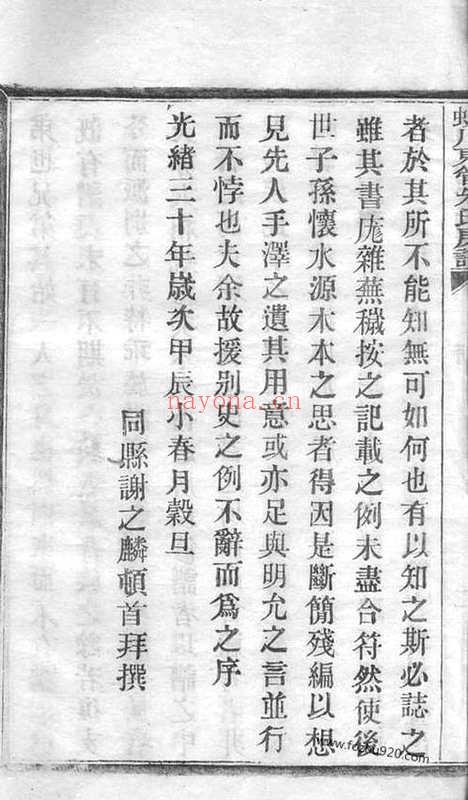 者於其所不能知無可如何也有以知之斯必誌之
雖其書庞雜蕪穢按之記載之例未盡合符然使後
世子孫懷水源木本之思者得因是斷簡殘編以想
見先人手澤之遺其用意或亦足與明允之言並行
而不悖也夫余故援别史之例不辭而爲之序
光緒三十年歲次甲辰小春月穀旦
同縣謝之麟頓首拜撰
nayona.cn